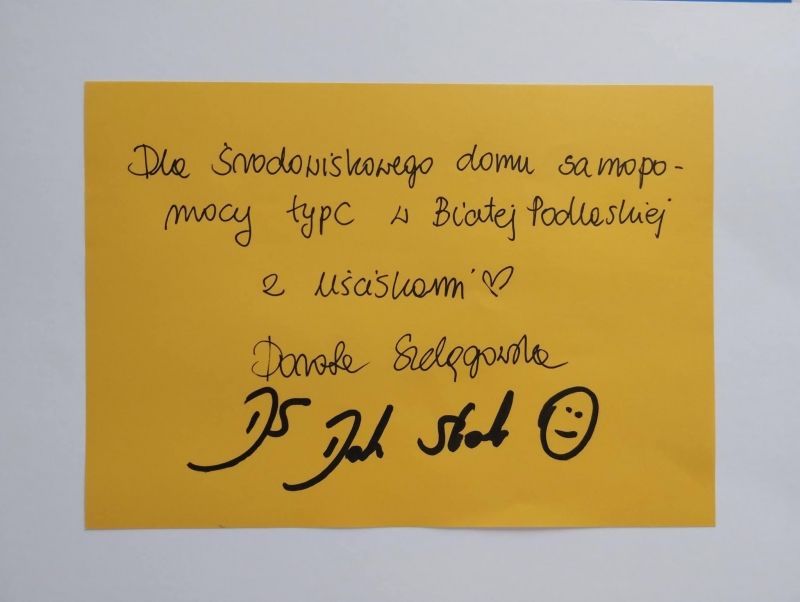 Dla Środowiskowego domu samopo-
mocy typ C w Białej Podlaskiej
z uściskami ♡
Dorota Szelągowska
DS